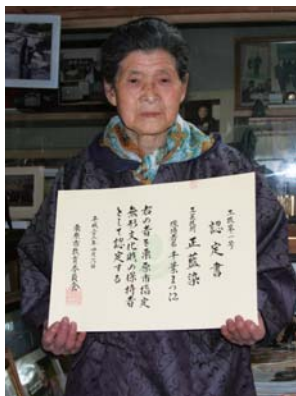 第一号
認定書
工芸技術 正藍染
保持者名 千葉まつ江
右の者を栗原市指定
無形文化財の保持者
として認定する
平成
栗原市教育委員会